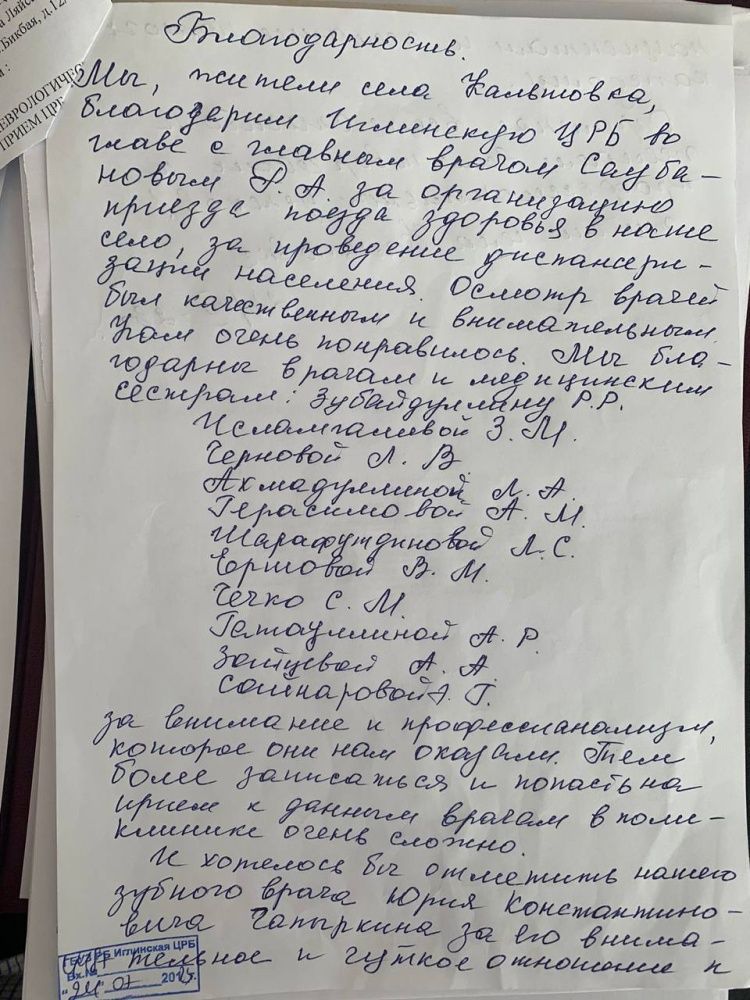 а Ляйса
.Бикбая, д.12/
ЕВРОЛОГИЧЕС
ПРИЕМ ЦРБ
Благодарность.
Мы, жители села Кальтовка,
благодарим Иглинскую ЦРБ во
главе с главным врачом Сауба-
новым Р.А. за организацию
приезда поезда здоровья в наше
село, за проведение диспансери-
зации населения. Осмотр врачей
был качественным и внимательным.
Нам очень понравилось. Мы бла-
годарны врачам и медицинским
сестрам: Зубайдуллину Р.Р.
Исламгалиевой З. М.
Черновой Л. В.
Ахмадуллиной Л. А.
Герасимовой А. М.
Шарафутдиновой Л. С.
Ершовой В. М.
Чечко С. М.
Гатауллиной А. Р.
Зайцевой А. А.
Сайнаровой Г.
за внимание и профессианализм,
которое они нам оказали. Тем
более записаться и попасть на
прием к данным врачам в поли-
клинике очень сложно.
И хотелось бы отметить нашего
зубного врача Юрия Константино-
вича Чапыркина за его внима-
тельное и чуткое отношение к
ГБУЗ РБ Иглинская ЦРБ
Вх.№
"24" 07